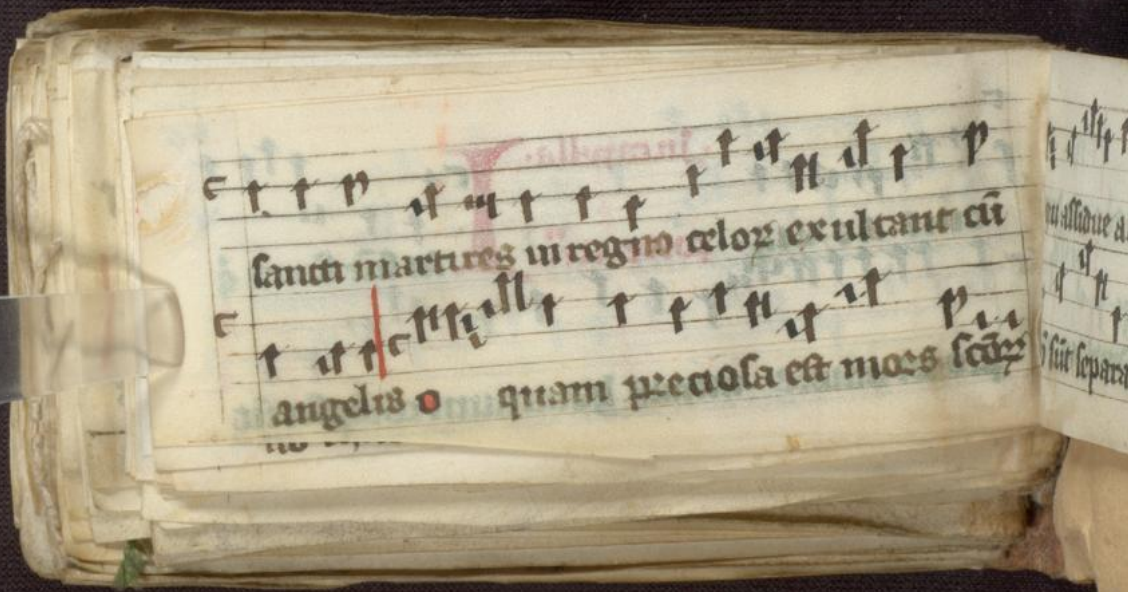 sancti martires in regno celoꝝ exultant cū
angelis o quam preciosa est mors scōꝝ
assidue a
sūt separa